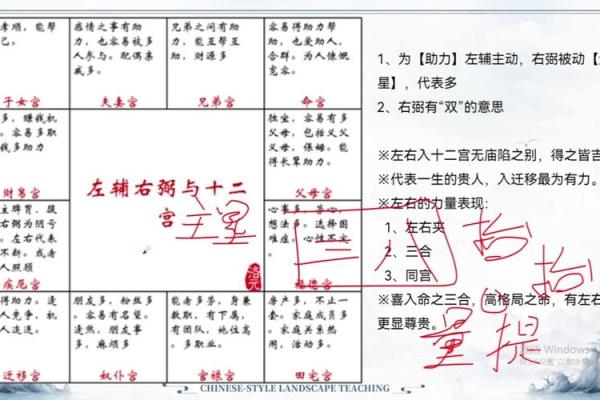 孝顺，能帮
己。
子女宫
感情之事有助
力，也容易被多
人参与。配偶亲
戚多。
夫妻宫
兄弟之间有助
力，能互帮互
助，财源多
兄弟宫
容易得助力帮
助，也爱助人，
合群。为人慷慨
宽容。
命宫
1、为【助力】左辅主动，右弼被动【
星】，代表多
2、右弼有“双”的意思
※左右入十二宫无庙陷之别，得之皆吉
※代表一生的贵人，入迁移最为有力。
※左右的力量表现：
1、左右夹
2、三合
3、同宫
※喜入命之三合，高格局之命，有左右
更显尊贵。
多，赚钱机
。容易有多
入。容易多职
钱多助力
财帛宫
左辅右弼与十二
宫
主星
独坐，容易有多
父母，包括义父
父母，保姆。能
得长辈助力。
父母宫
主脾胃。腰
右弼为阴亏
。左右代表
不断。或者
人照顾
疾厄宫
心事多，多心，
想法多。选择困
难症。心性不实
福德宫
洛元
三八
得助力。逢
人竞争，机
人连连。
迁移宫
朋友多，粉丝多
。容易有名望。
逢煞，朋友事
多，麻烦多
奴仆宫
能者多劳，身兼
数职，有下属，
有团队，地位高
。多职业。
官禄宫
房产多，不止一
套。家庭成员多
。家庭关系热
闹，活动多。
田宅宫
量提
激活 Windows
CHINESE-STYLE LANDSCAPE TEACHING